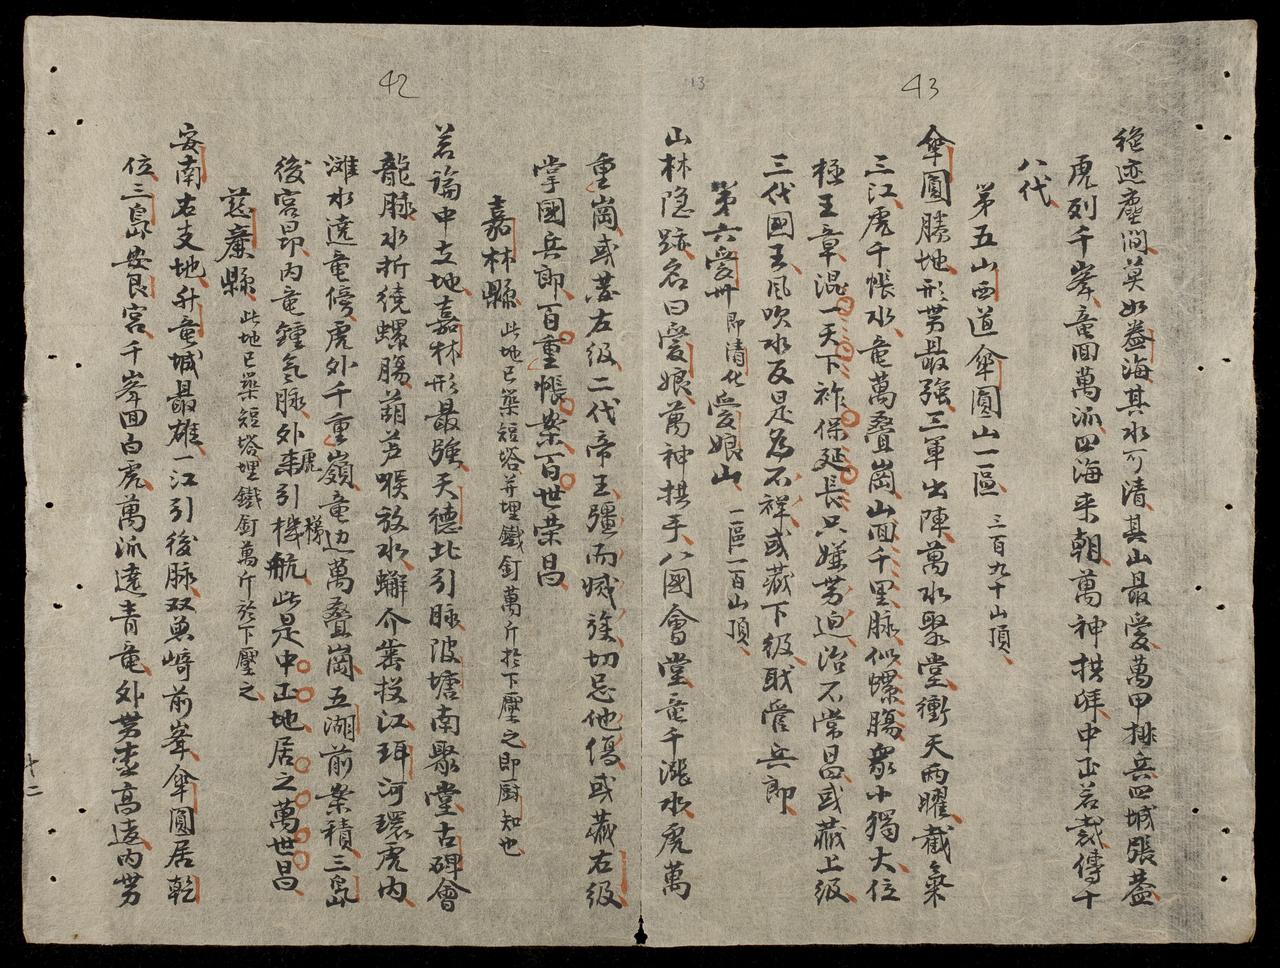 43
絕迹塵間莫如益海其水可清其山最愛萬甲排兵四城張蓋
虎列千峯竜回萬派四海来朝萬神拱拜中正若裁傳十
八代
第五山西道傘圓山一區 三百九十山頂
傘圓勝地形势最強三軍出陣萬水聚堂衝天兩曜截氣
三江虎千帳水竜萬叠崗山回千里脉似螺腸衆小獨大位
極王章混一天下祚保延長只嫌势迫治不常昌或藏上級
三代國王風吹水反是為不祥或藏下級職管兵郎
第六愛州 即清化愛娘山 一區一百山頂
山林隐跡名曰愛娘萬神拱手八國會堂竜千漲水虎萬
13
42
重崗或葬左級二代帝王疆而滅後切忌他傷或藏右級
掌國兵郎百重帳案百世荣昌
嘉林縣 此地已築短塔并埋鐵釘萬斤於下壓之即厨知也
若論中支地嘉林形最強天德北引脉陂塘南聚堂古碑會
龍脉水折繞螺腸葫芦喉放水蠏介舊投江珥河環虎内
滩水遶竜傍虎外千重嶺竜边萬叠崗五湖前案積三島
後宮昂内竜鍾氣脉外虎引機梯航此是中正地居之萬世昌
慈廉縣 此地已築短塔埋鐵釘萬斤於下壓之
安南右支地升竜城最雄一江引後脉双魚崎前峯傘圓居乾
位三島安艮宮千峯回白虎萬派遶青竜外势極高遠内势
十二